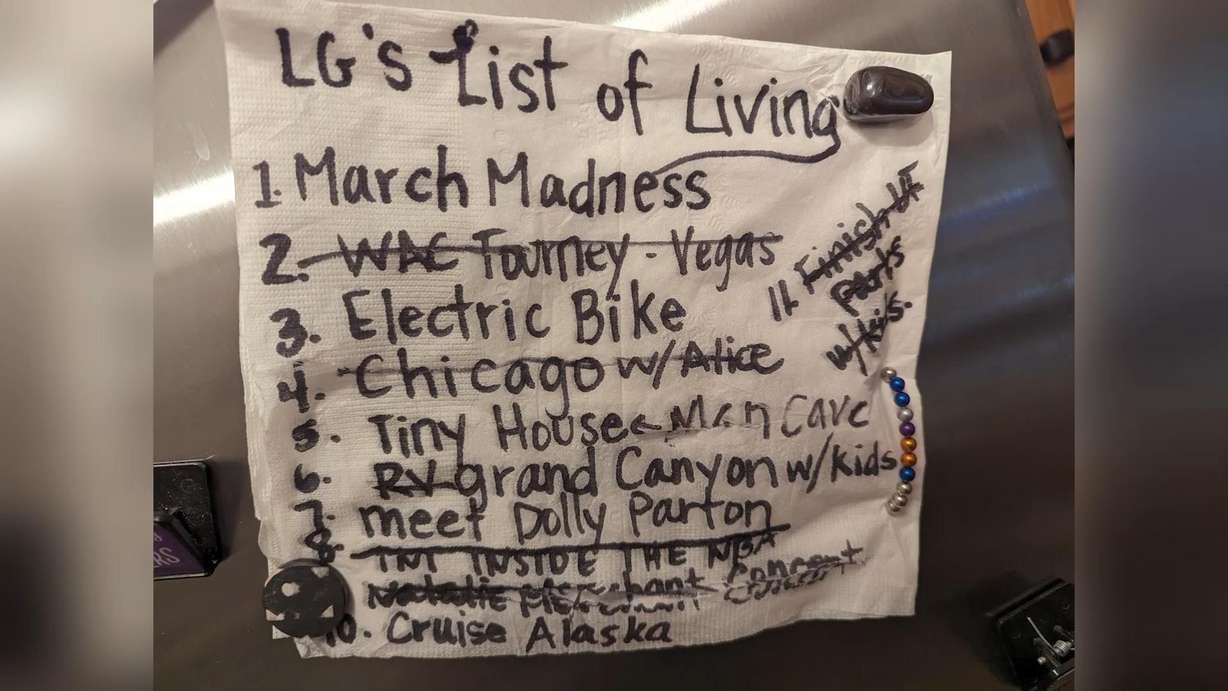 LG's List of Living
1. March Madness
2. WAC Tourney - Vegas
3. Electric Bike
4. Chicago w/ Alice
5. Tiny House Man Cave
6. RV grand Canyon w/kids
7. meet Dolly Parton
8. TNT INSIDE THE NBA
Natalie Merchant Concert
10. Cruise Alaska
11. Finish
Parks
w/kids.
RS